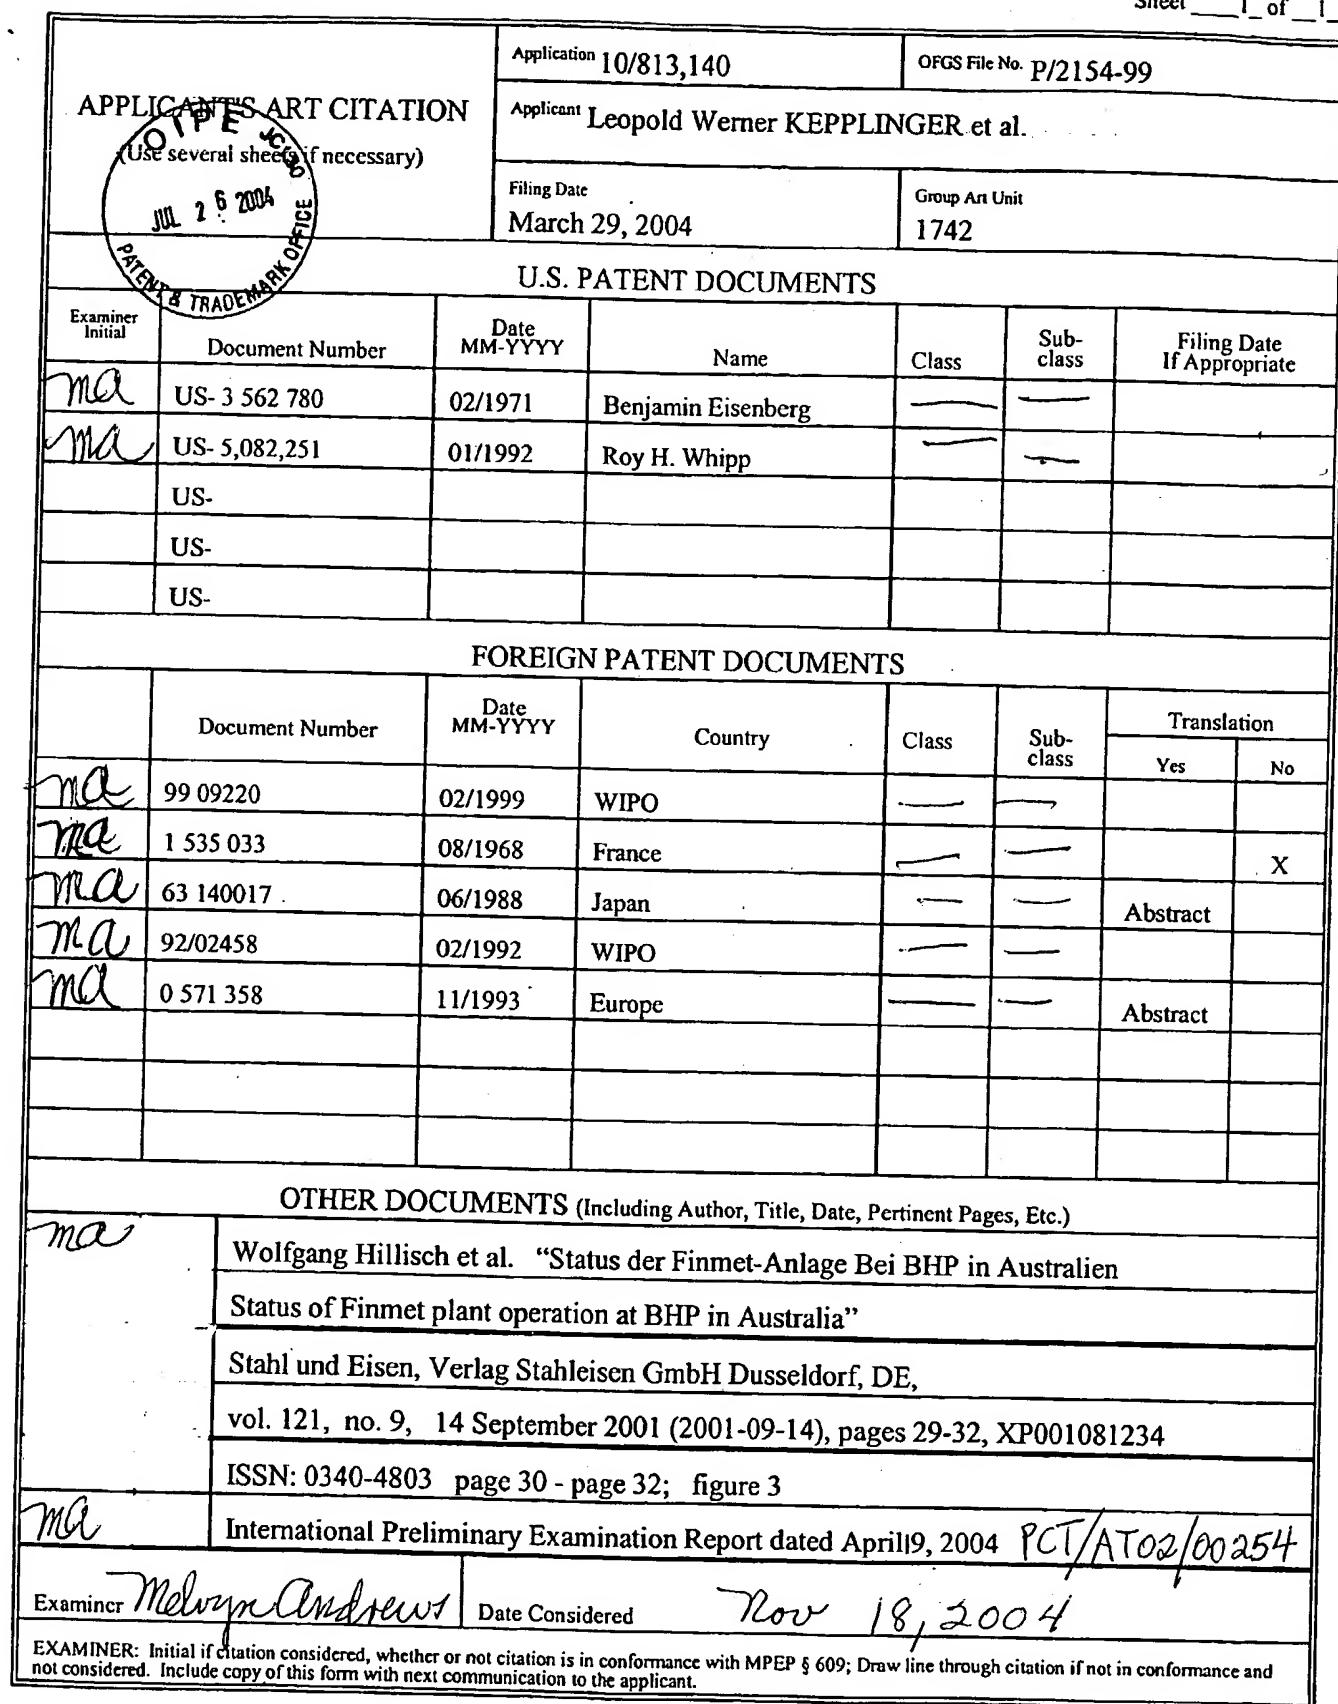 Sheet 1 of 1
Application 10/813,140
OFGS File No. P/2154-99
APPLICANT'S ART CITATION
(Use several sheets if necessary)
Applicant Leopold Werner KEPPLINGER et al.
Filing Date
March 29, 2004
Group Art Unit
1742
OIPE
JUL 26 2004
PATENT & TRADEMARK OFFICE
U.S. PATENT DOCUMENTS
Examiner Initial
Document Number
Date MM-YYYY
Name
Class
Sub-class
Filing Date If Appropriate
ma US- 3 562 780 02/1971 Benjamin Eisenberg — —
ma US- 5,082,251 01/1992 Roy H. Whipp — —
US-
US-
US-
FOREIGN PATENT DOCUMENTS
Document Number
Date MM-YYYY
Country
Class
Sub-class
Translation
Yes
No
ma 99 09220 02/1999 WIPO — —
ma 1 535 033 08/1968 France — — X
ma 63 140017 06/1988 Japan — — Abstract
ma 92/02458 02/1992 WIPO — —
ma 0 571 358 11/1993 Europe — — Abstract
OTHER DOCUMENTS (Including Author, Title, Date, Pertinent Pages, Etc.)
ma Wolfgang Hillisch et al. “Status der Finmet-Anlage Bei BHP in Australien
Status of Finmet plant operation at BHP in Australia”
Stahl und Eisen, Verlag Stahleisen GmbH Dusseldorf, DE,
vol. 121, no. 9, 14 September 2001 (2001-09-14), pages 29-32, XP001081234
ISSN: 0340-4803 page 30 - page 32; figure 3
ma International Preliminary Examination Report dated April 19, 2004 PCT/AT02/00254
Examiner Melvyn Andrews
Date Considered Nov 18, 2004
EXAMINER: Initial if citation considered, whether or not citation is in conformance with MPEP § 609; Draw line through citation if not in conformance and
not considered. Include copy of this form with next communication to the applicant.